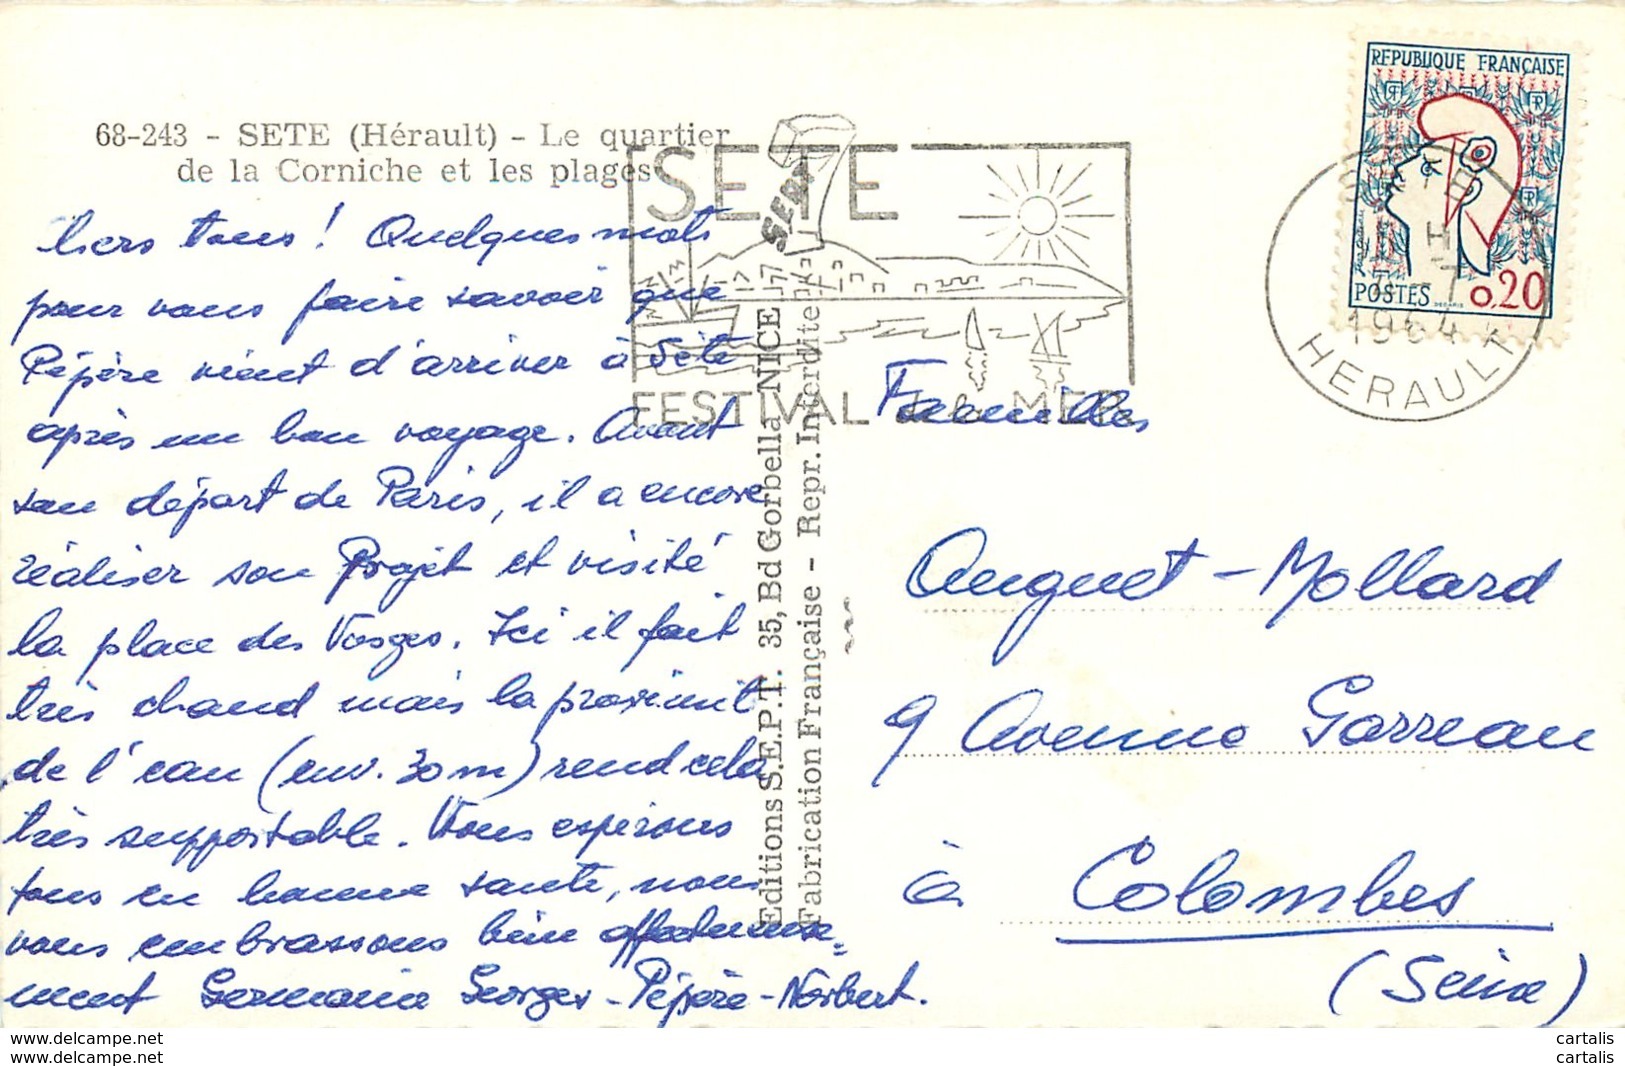 68-243 - SETE (Hérault) - Le quartier
de la Corniche et les plages
Chers tous! Quelques mots
pour vous faire savoir que
Pépère vient d'arriver à Sète
après un bon voyage. Avant
son départ de Paris, il a encore
réaliser son Projet et visité
la place des Vosges. Ici il fait
très chaud mais la proximit
de l'eau (env. 30m) rend cela
très supportable. Vous espérons
tous en bonne santé, nous
vous embrassons bien affectueuse=
ment Germaine Georges - Pépère - Norbert.
SETE
FESTIVAL de la MER
Editions S.E.P.T. 35, Bd Gorbella NICE
Fabrication Française - Repr. Interdite
REPUBLIQUE FRANÇAISE
RF
POSTES 0.20
SETE
1964
HERAULT
Familles
Auguet - Mollard
9 Avenue Garreau
à Colombes
(Seine)
www.delcampe.net
www.delcampe.net
cartalis
cartalis